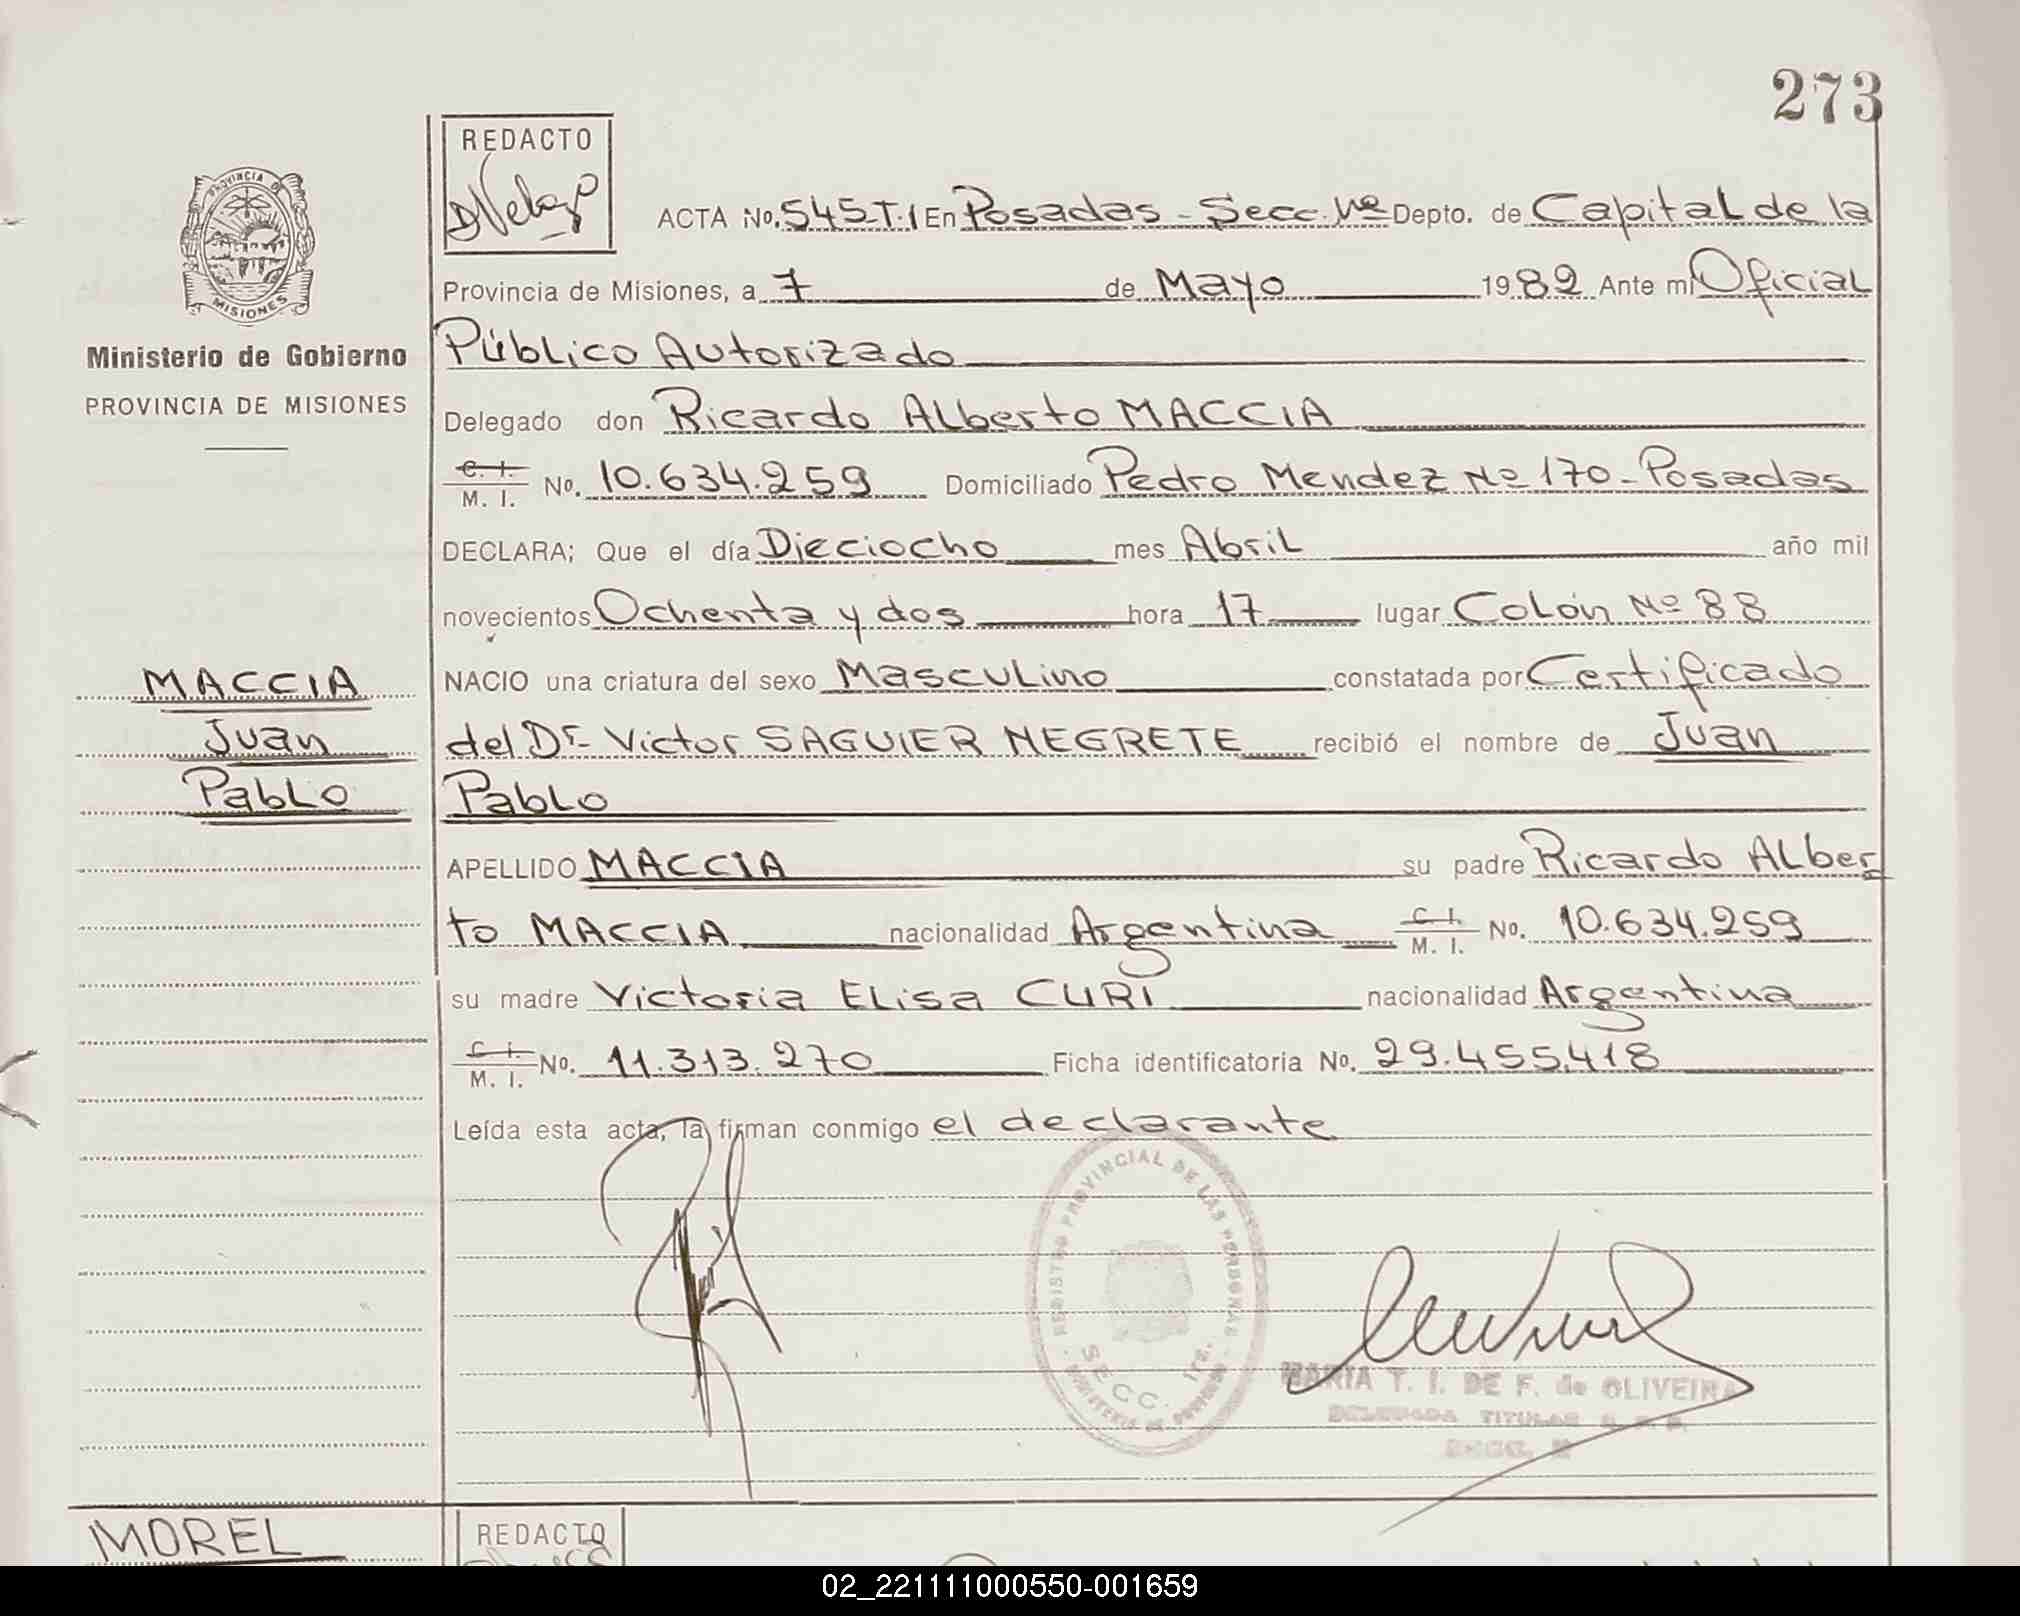 273
REDACTO
PROVINCIA DE
MISIONES
Ministerio de Gobierno
PROVINCIA DE MISIONES
ACTA No. 545 T.I En Posadas - Secc. 1ra Depto. de Capital de la
Provincia de Misiones, a 7 de Mayo 1982 Ante mi Oficial
Público Autorizado
Delegado don Ricardo Alberto MACCIA
C. I.
M. I. No. 10.634.259 Domiciliado Pedro Mendez Nº 170 - Posadas
DECLARA; Que el día Dieciocho mes Abril año mil
novecientos Ochenta y dos hora 17 lugar Colón Nº 88
MACCIA
Juan
Pablo
NACIO una criatura del sexo Masculino constatada por Certificado
del Dr. Victor SAGUIER NEGRETE recibió el nombre de Juan
Pablo
APELLIDO MACCIA su padre Ricardo Alber
to MACCIA nacionalidad Argentina C. I. M. I. No. 10.634.259
su madre Victoria Elisa CURI nacionalidad Argentina
C. I.
M. I. No. 11.313.270 Ficha identificatoria No. 29.455.418
Leída esta acta, la firman conmigo el declarante
REGISTRO PROVINCIAL DE LAS PERSONAS
MINISTERIO DE GOBIERNO
SECC. 1ra.
MARIA T. I. DE F. de OLIVEIRA
DELEGADA TITULAR
SECC.
MOREL
REDACTO
02_221111000550-001659